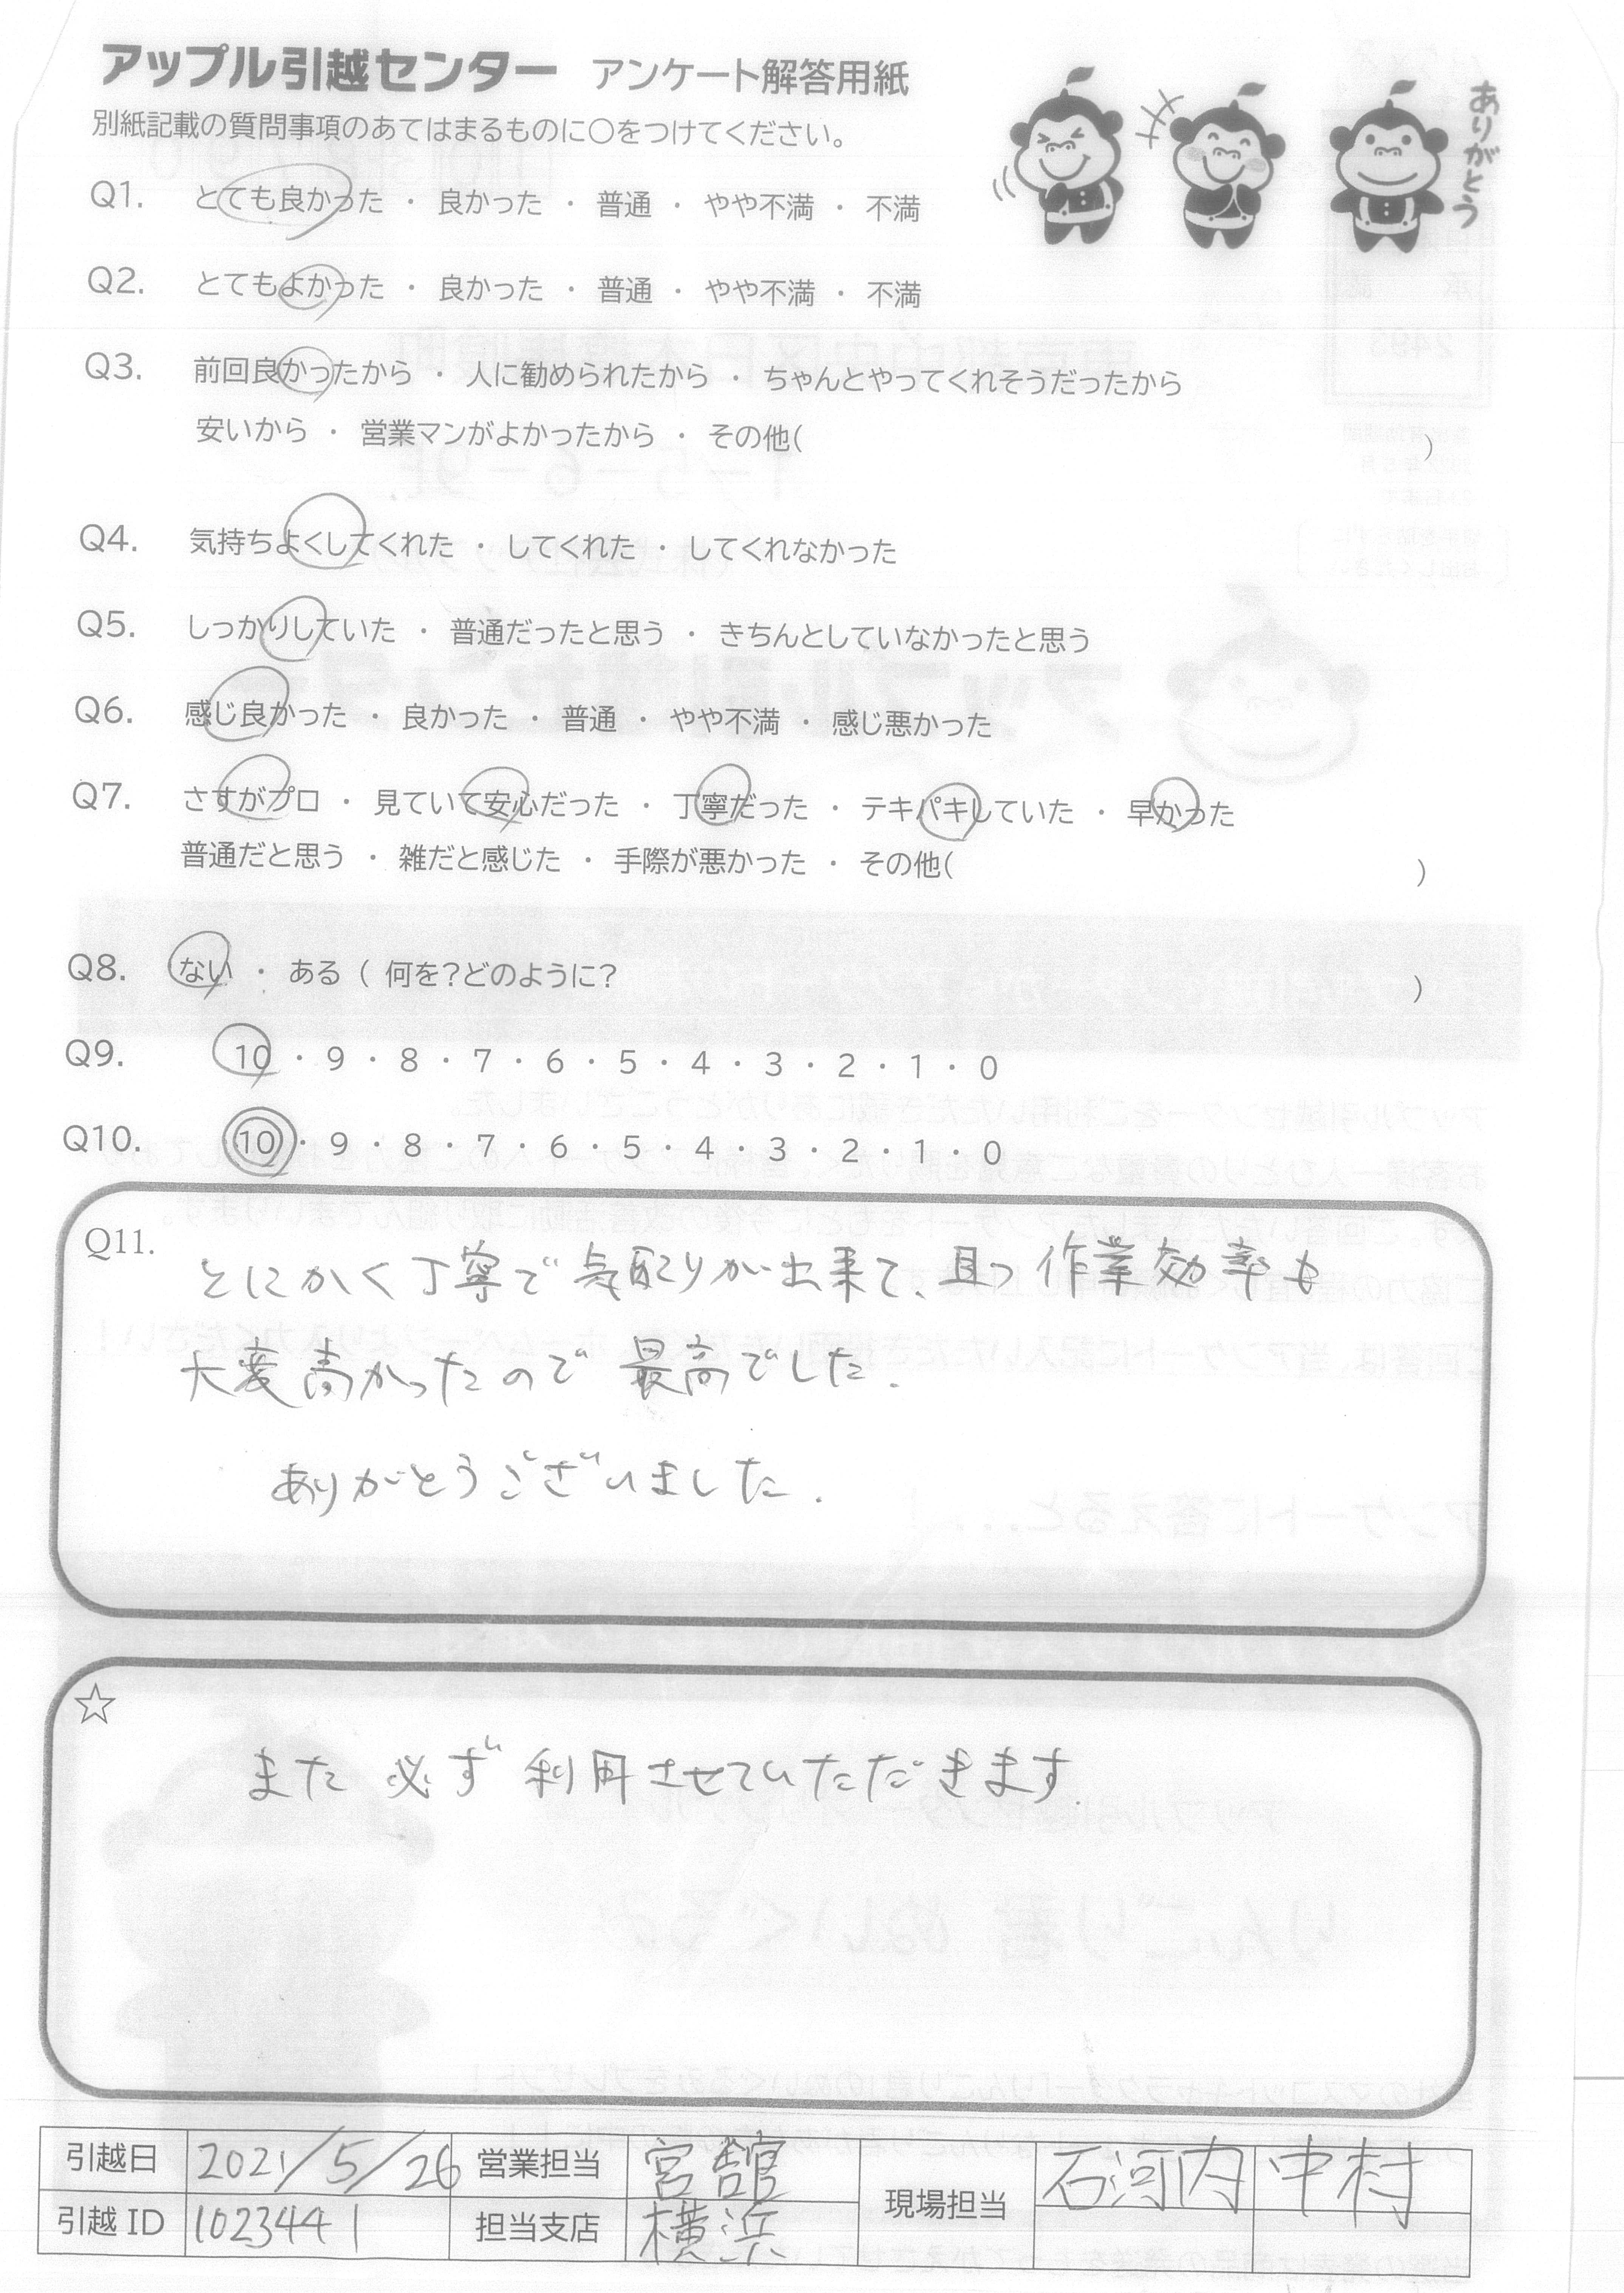 アップル引越センター アンケート解答用紙
別紙記載の質問事項のあてはまるものに○をつけてください。
ありがとう
Q1. とても良かった ・ 良かった ・ 普通 ・ やや不満 ・ 不満
Q2. とてもよかった ・ 良かった ・ 普通 ・ やや不満 ・ 不満
Q3. 前回良かったから ・ 人に勧められたから ・ ちゃんとやってくれそうだったから
安いから ・ 営業マンがよかったから ・ その他( )
Q4. 気持ちよくしてくれた ・ してくれた ・ してくれなかった
Q5. しっかりしていた ・ 普通だったと思う ・ きちんとしていなかったと思う
Q6. 感じ良かった ・ 良かった ・ 普通 ・ やや不満 ・ 感じ悪かった
Q7. さすがプロ ・ 見ていて安心だった ・ 丁寧だった ・ テキパキしていた ・ 早かった
普通だと思う ・ 雑だと感じた ・ 手際が悪かった ・ その他( )
Q8. ない ・ ある ( 何を?どのように? )
Q9. 10 ・ 9 ・ 8 ・ 7 ・ 6 ・ 5 ・ 4 ・ 3 ・ 2 ・ 1 ・ 0
Q10. 10 ・ 9 ・ 8 ・ 7 ・ 6 ・ 5 ・ 4 ・ 3 ・ 2 ・ 1 ・ 0
Q11.
とにかく丁寧で気配りが出来て、且つ作業効率も
大変高かったので最高でした.
ありがとうございました.
☆
また必ず利用させていただきます.
引越日 2021/5/26 営業担当 宮舘 現場担当 石河内 中村
引越ID 1023441 担当支店 横浜